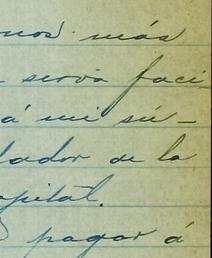 unos más
serva faci-
á mi sú-
lador de la
apital.
pagar á